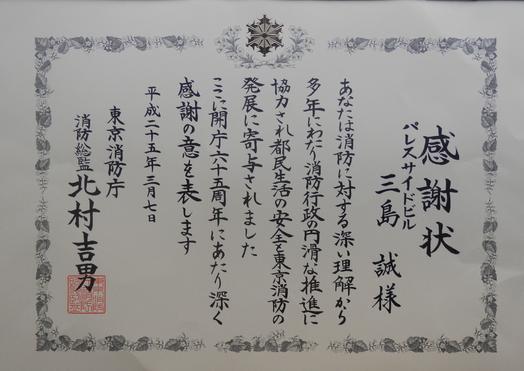 感謝状
パレスサイドビル
三島 誠 様
あなたは消防に対する深い理解から
多年にわたり消防行政の円滑な推進に
協力され都民生活の安全と東京消防の
発展に寄与されました
ここに開庁六十五周年にあたり深く
感謝の意を表します
平成二十五年三月七日
東京消防庁
消防総監 北村吉男